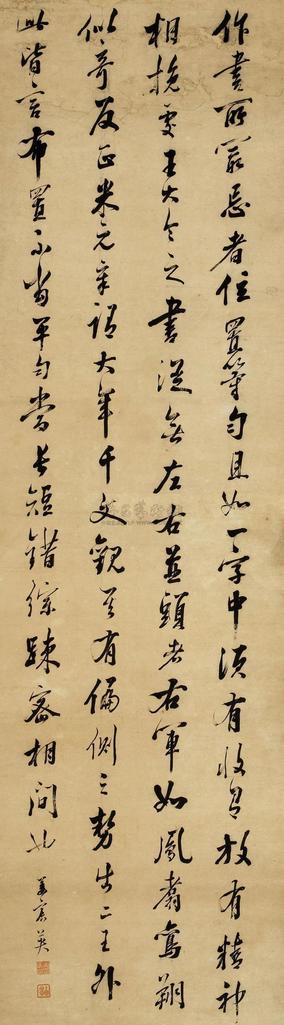 作書所最忌者位置等勻且如一字中須有收有放有精神
相挽處王大令之書從無左右並頭者右軍如鳳翥鸞翔
似奇反正米元章謂大年千文觀其有偏側之勢出二王外
此皆言布置不當平勻當長短錯綜疎密相間也
姜宸英